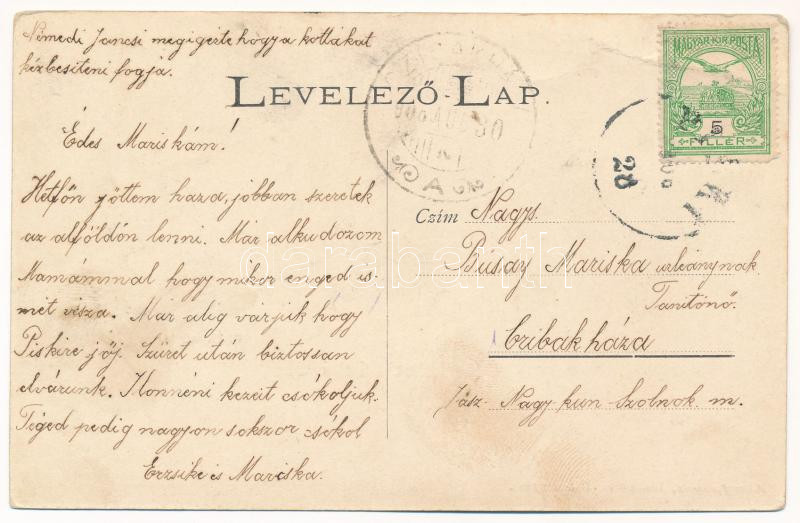 Némedi Jancsi megigérte hogy a kottákat
kézbesíteni fogja.
LEVELEZŐ-LAP.
Édes Mariskám!
Hetfőn jöttem haza, jobban szeretek
az alföldön lenni. Már alkudozom
Mamámmal hogy mikor enged is-
mét vissza. Már alig várjuk hogy
Piskire jőj. Szüret után biztossan
elvárunk. Ilonnéni kezeit csókoljuk.
Téged pedig nagyon sokszor csókol
Erzsike és Mariska.
MAGYAR KIR. POSTA
5
FILLÉR
28
906 AUG 30
A
Czím Nagys.
Búsay Mariska urleánynak
Tanítónő.
Czibakháza
Jász-Nagy-kun-Szolnok m.
darabanth